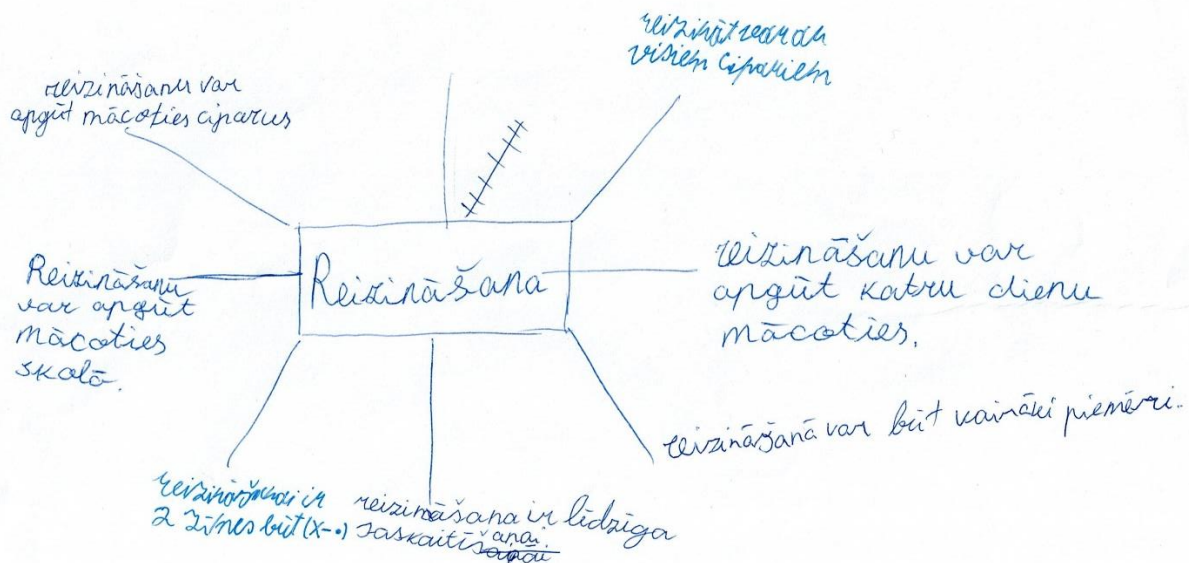 reizināt var ar
visiem cipariem
reizināšanu var
apgūt mācoties ciparus
Reizināšana
Reizināšanu
var apgūt
mācoties
skolā.
reizināšanu var
apgūt katru dienu
mācoties.
reizināšanā var būt vairāki piemēri.
reizināšanai ir
2 zīmes būt (x-•)
reizināšana ir līdzīga
saskaitīšanai.